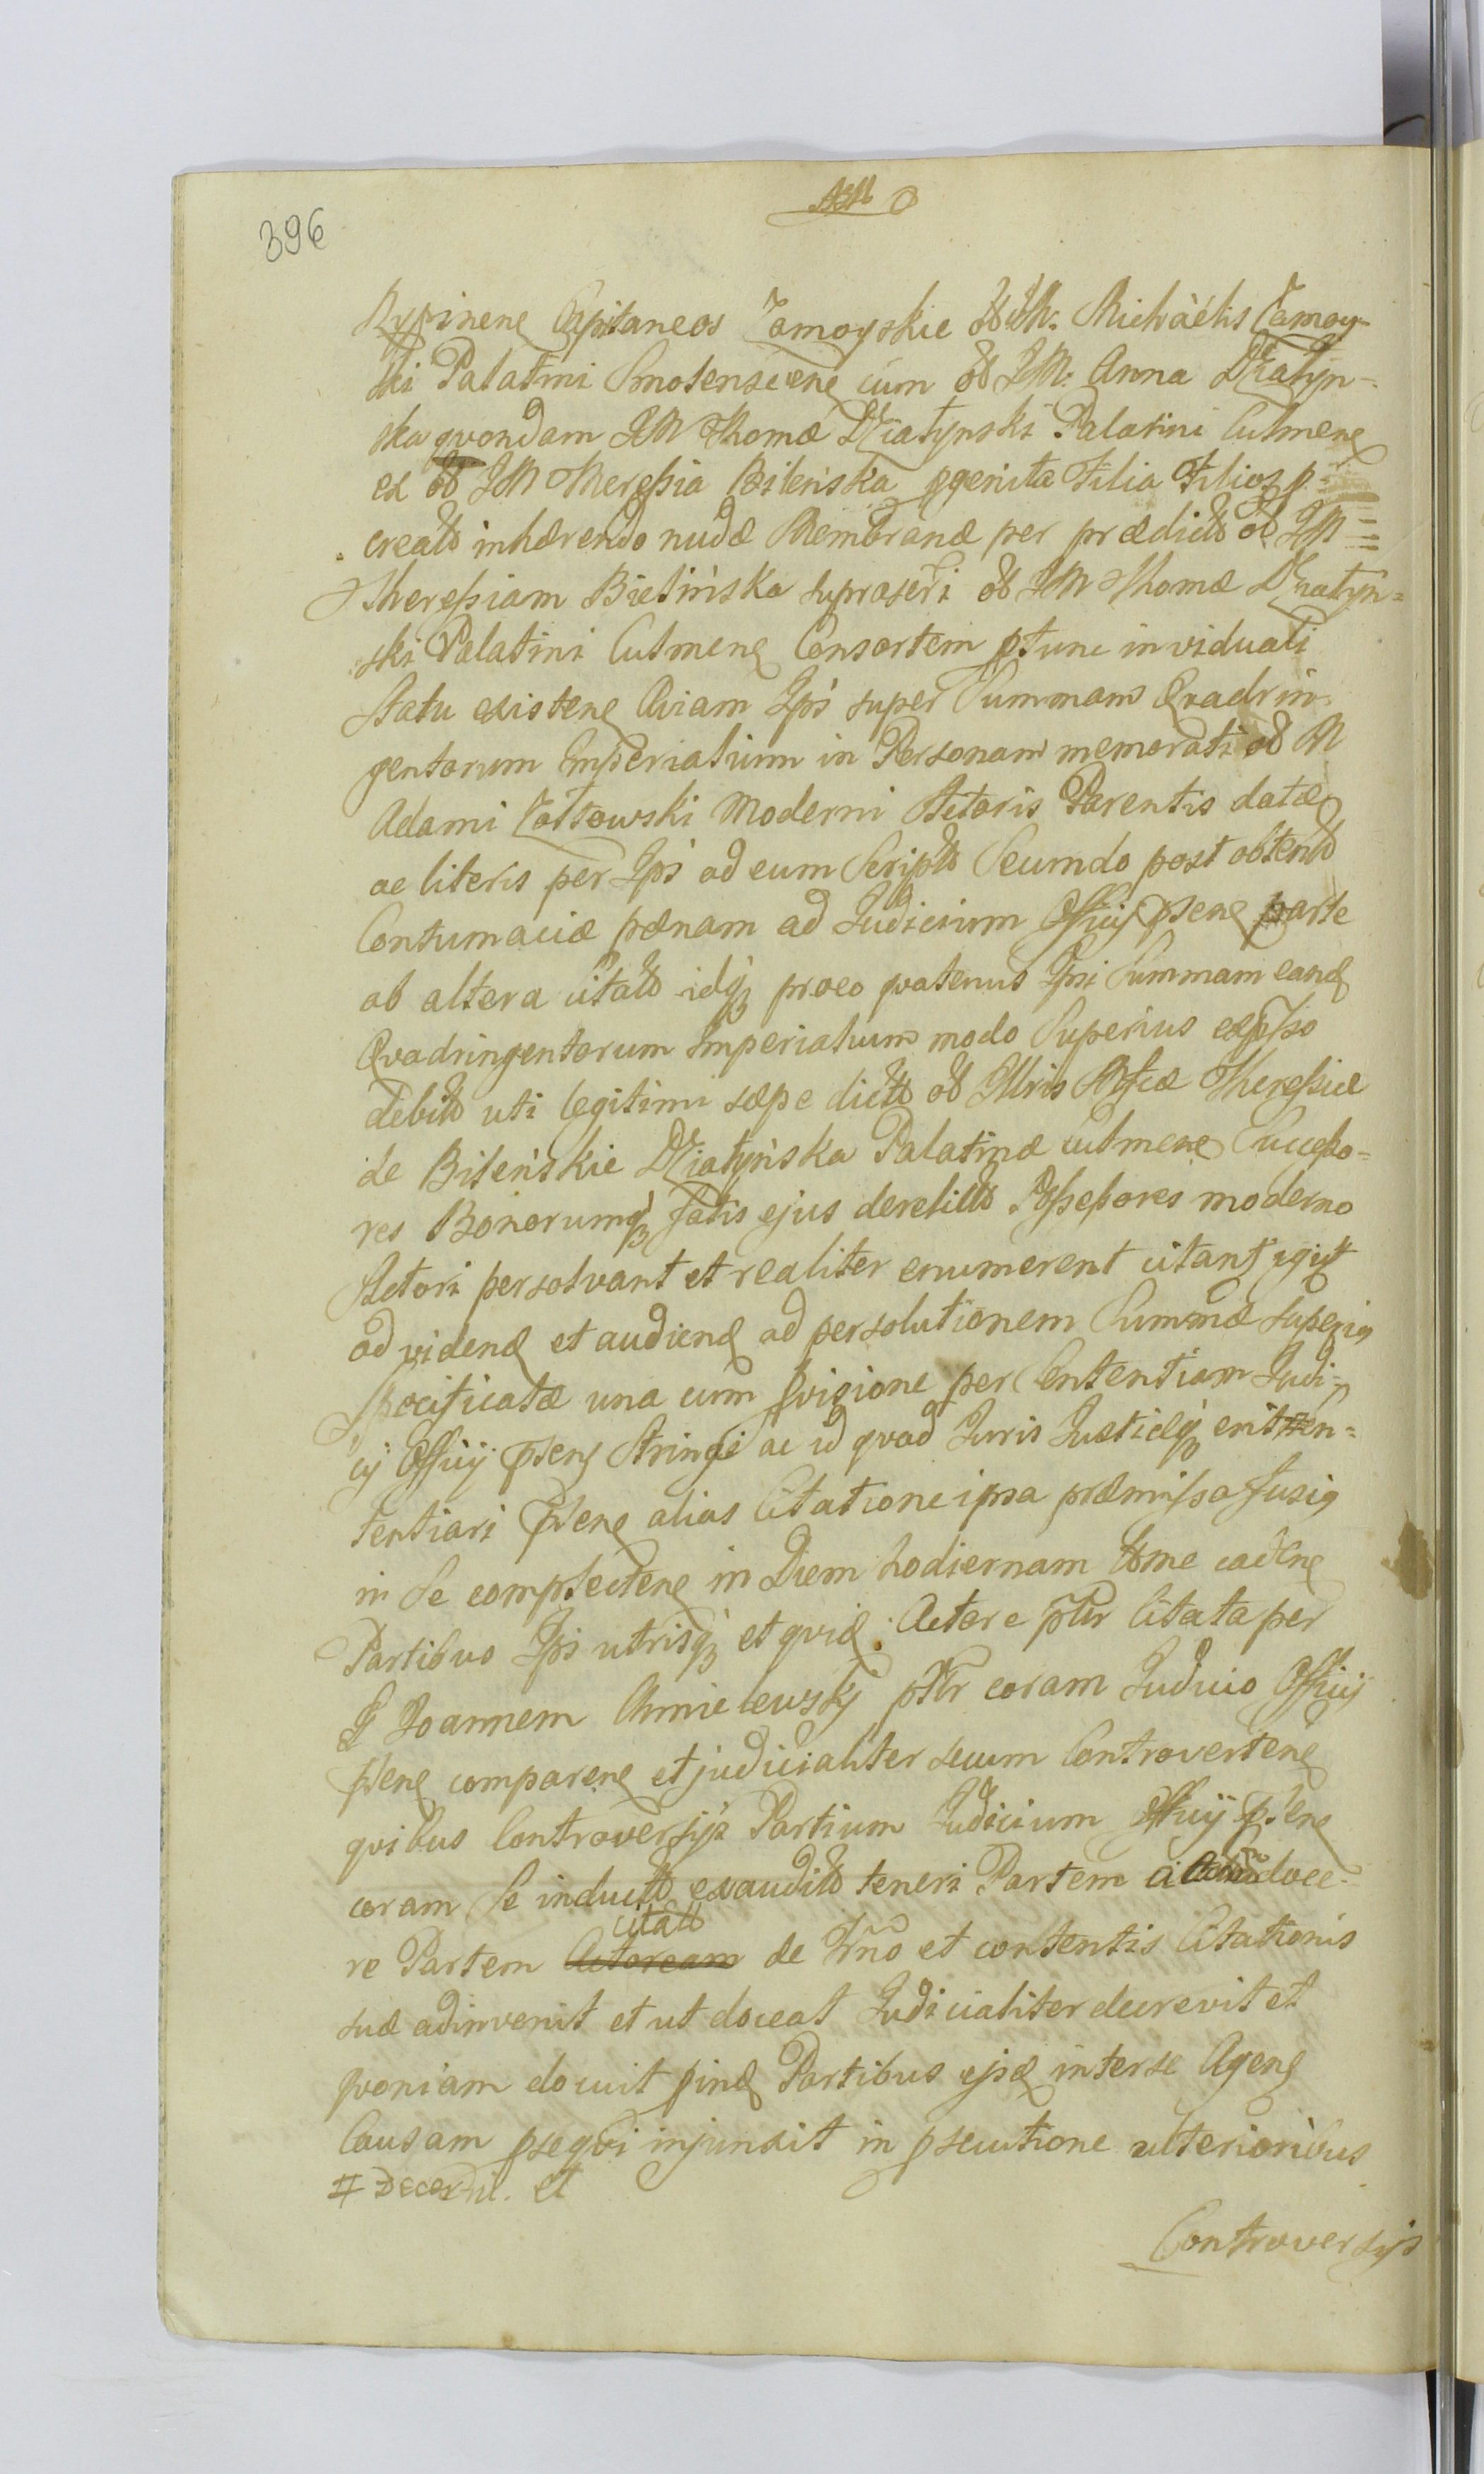 396
Rypinenẽ Capitaneos Zamoyskie olim JM. Michäelis Zamoy-
ski Palatini Smolenscenẽ cum olim JM. Anna Działyn-
ska qvondam JM Thomæ Działynski Palatini Culmenẽ
ex olim JM Theressia Bileńska pgenita Filia Filios p-
creatos inhærendo nudæ Membranæ per prædictam olim JM
Theressiam Bielińska suprascri olim JM Thomæ Działyn=
ski Palatini Culmenẽ Consortem ptunc in viduali
Statu existenẽ Aviam Ipś super Summam Qvadrin-
gentorum Imperialium in Personam memorati olim M
Adami Zołtowski Moderni Actoris Parentis datæ
ac literis per Ipś ad eum Scriptis Secundo post obtentam
Contumaciæ pænam ad Judicium Officij pśenẽ parte
ab altera citatos idq́ proeo qvatenus Ipsi Summam eand
Qvadringentorum Imperialium modo Superius expsso
debitam uti legitimi sæpe dictæ olim Illris Mficæ Theressiæ
de Bileńskie Działyńska Palatinæ Culmenẽ Successo=
res Bonorumq́ fatis ejus derelictorum Possessores moderno
Actori persolvant et realiter enumerent citant
ad videnđ et audienđ ad persolutionem Summæ superiꝰ
specificatæ una cum pvisione per Sententiam Judi-
cij Officij pśenẽ Stringi ac id qvod Juris Justitiæq́ erit Sen=
tentiari pśenẽ alias Citatione ipsa præmissa fusiꝰ
in Se complectenẽ in Diem hodiernam lꝛme cadenẽ
Partibus Ipś utrisq́ et qvid. Actore pltr Citata per
G Joannem Chmielewskj pltr coram Judicio Officij
pśenẽ comparenẽ et judicialiter secum Controvertenẽ
qvibus Controversijs Partium Judicium Officij pśenẽ
coram Se inductis exauditis teneri Partem Actoream doce-
re Partem Actoream citatam de Trño et contentis Citationis
suæ adinvenit et ut doceat Judicialiter decrevit et
qvoniam docuit pind Partibus ejsd inter se Agenẽ
Causam pseqvi injunxit in psecutione ulterioribus
# Decernit. et
Controversijs